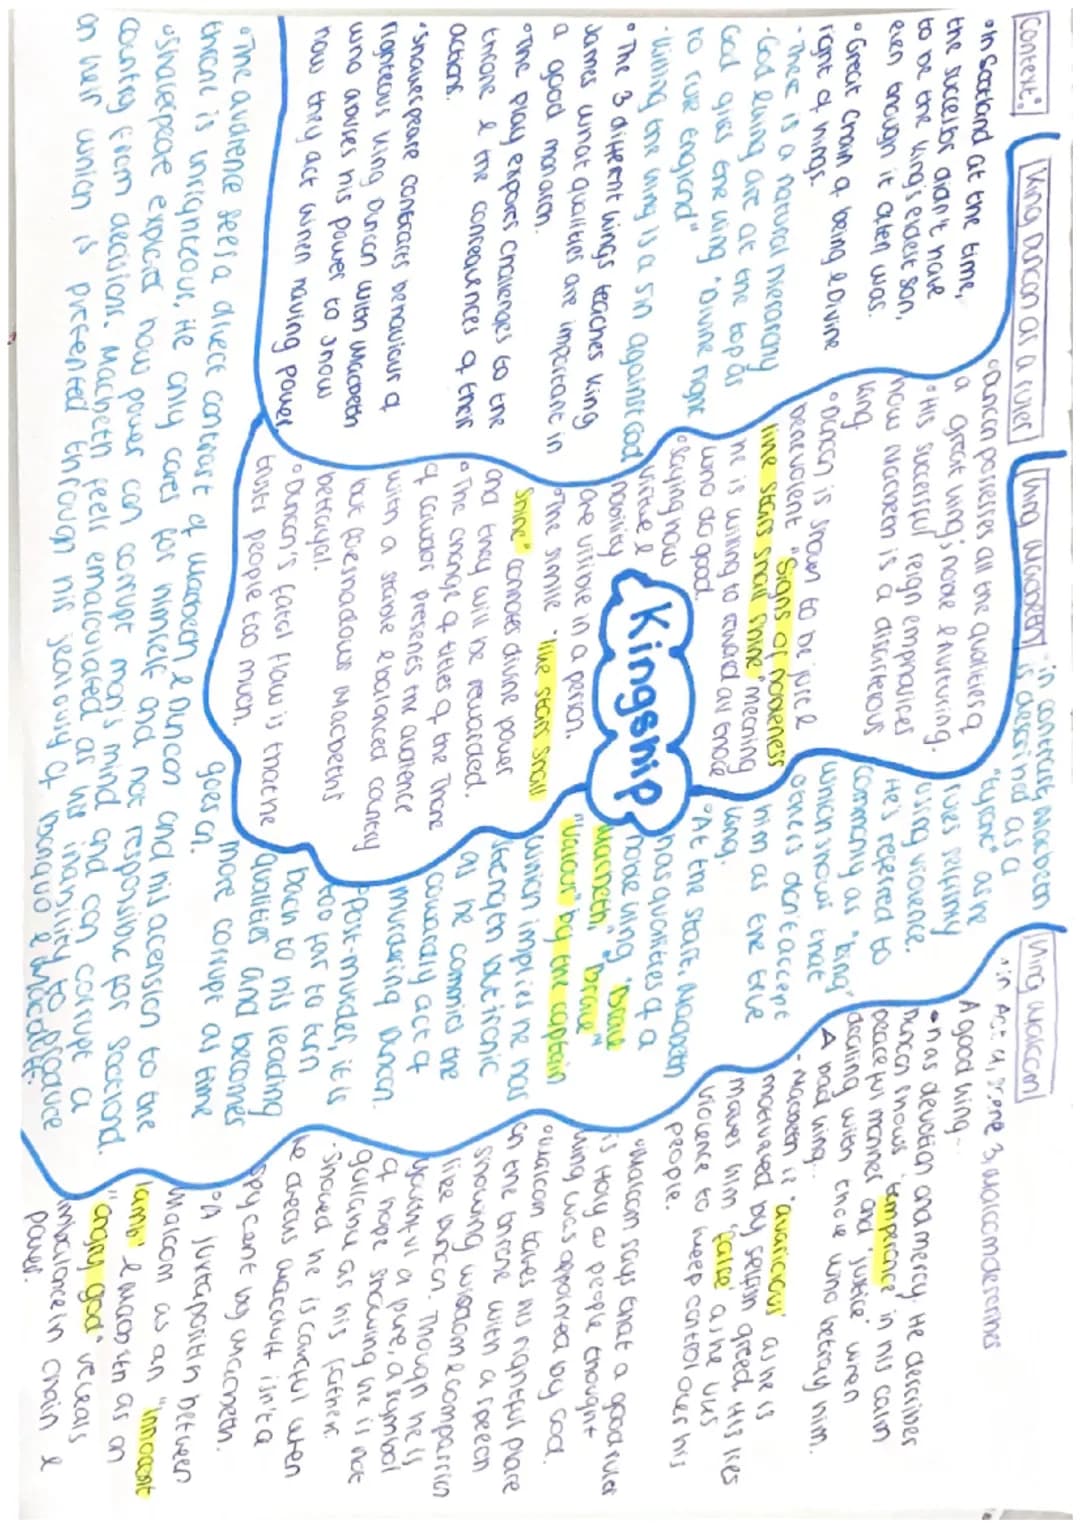 Context:
• In Scotland at the time,
the successor didn't have
to be the king's eldest son,
even though it often was.
• Great Chain of being & Divine
right of kings.
- There is a natural hierarchy
- God & king are at the top as
God gives the king "Divine right
to rule England"
- Killing the king is a sin against God
• The 3 different kings teaches King
James what qualities are important in
a good monarch.
• The play explores challenges to the
throne & the consequences of their
actions.
• Shakespeare contrasts behaviour of
righteous king Duncan with Macbeth
who abuses his power to show
how they act when having power
King Duncan as a ruler
• Duncan possesses all the qualities of
a great king: noble & nurturing.
• His successful reign emphasises
how Macbeth is a disastrous
king
• Duncan is shown to be just &
benevolent "Signs of nobleness
like stars shall shine" meaning
he is willing to reward all those
who do good.
• Saying how
virtue &
nobility
are visible in a person.
• The simile "like stars shall
shine" connotes divine power
and they will be rewarded.
• The change of titles of the Thane
of Cawdor presents the audience
with a stable & balanced country
but foreshadows Macbeth's
betrayal.
• Duncan's fatal flaw is that he
trusts people too much.
Kingship
King Macbeth
• in contrast, Macbeth
is described as a
"tyrant" as he
rules selfishly
using violence.
He's referred to
commonly as "king"
which shows that
others don't accept
him as the true
king.
• At the start, Macbeth
has qualities of a
noble king "Brave
Macbeth," "brave"
"Valour" by the captain
which implies he has
strength but ironic
as he commits the
cowardly act of
murdering Duncan.
• Post-murder, it is
too far to turn
back to his leading
qualities and becomes
more corrupt as time
goes on.
• The audience sees a direct contrast of Macbeth & Duncan and his ascension to the
throne is unrighteous, he only cares for himself and not responsible for Scotland.
• Shakespeare explores how power can corrupt man's mind and can corrupt a
country from decisions. Macbeth feels emasculated as his inability to produce
an heir which is presented through his jealousy of Banquo & Macduff.
King Malcom
• in Act 4, scene 3, Malcom determines
A good king...
• has devotion and mercy. He describes
Duncan shows 'temperance' in his calm
peaceful manner and 'justice' when
dealing with those who betray him.
A bad king...
- Macbeth is 'avaricious' as he is
motivated by selfish greed. His lies
makes him 'false' as he uses
violence to keep control over his
people.
• Malcom says that a good ruler
is Holy as people thought
king was appointed by God.
• Malcom takes his rightful place
on the throne with a speech
showing wisdom & compassion
like Duncan. Though he is
youthful & pure, a symbol
of hope showing he is not
gullible as his father.
• Showed he is careful when
he checks Macduff isn't a
spy sent by Macbeth.
• A juxtaposition between
Malcom as an "innocent
lamb" & Macbeth as an
"angry god" reveals
imbalance in chain &
power.